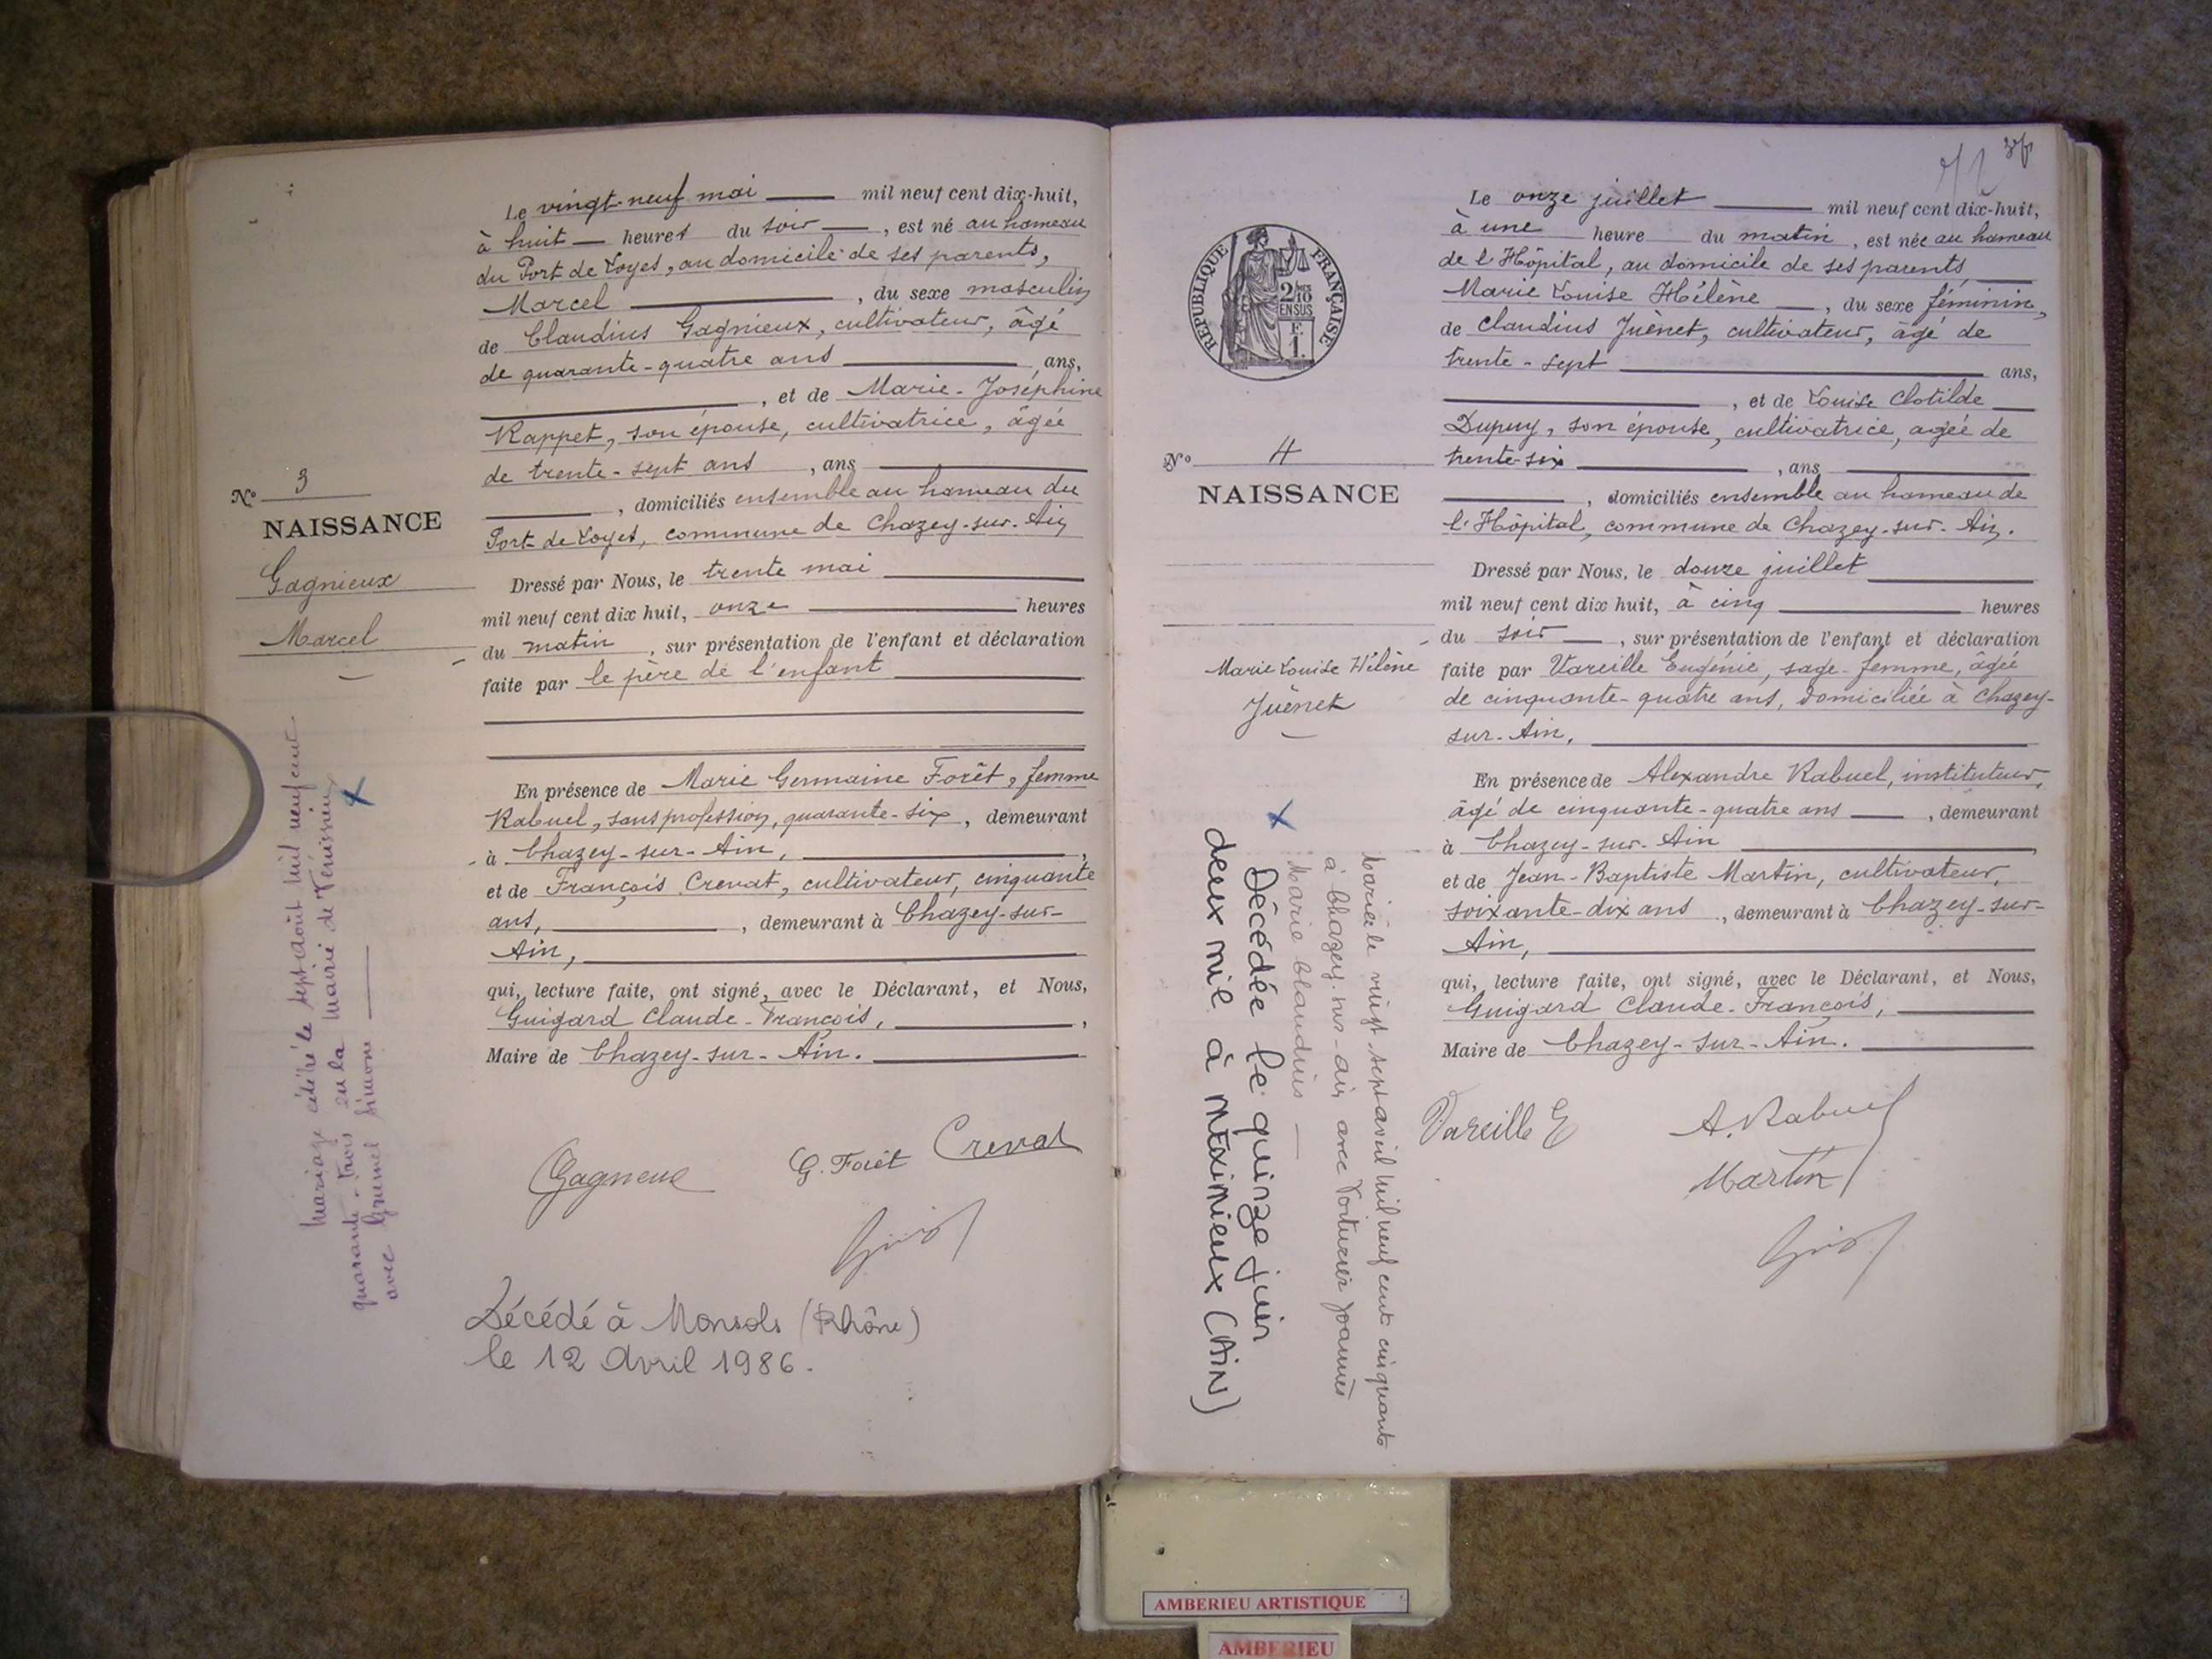 Le vingt-neuf mai mil neuf cent dix-huit,
à huit heures du soir, est né au hameau
du Port de Loyes, au domicile de ses parents,
Marcel, du sexe masculin
de Claudius Gagnieux, cultivateur, âgé
de quarante-quatre ans ans,
, et de Marie-Joséphine
Rappet, son épouse, cultivatrice, âgée
de trente-sept ans, ans
, domiciliés ensemble au hameau du
Port de Loyes, commune de Chazey-sur-Ain
Dressé par Nous, le trente mai
mil neuf cent dix huit, onze heures
du matin, sur présentation de l'enfant et déclaration
faite par le père de l'enfant
En présence de Marie Germaine Forêt, femme
Rabuel, sans profession, quarante-six, demeurant
à Chazey-sur-Ain,
et de François Crevat, cultivateur, cinquante
ans, , demeurant à Chazey-sur-
Ain,
qui, lecture faite, ont signé, avec le Déclarant, et Nous,
Guigard Claude-François,
Maire de Chazey-sur-Ain.
Gagneux G. Forêt Crevat
Décédé à Monsols (Rhône)
le 12 Avril 1986.
N° 3
NAISSANCE
Gagnieux
Marcel
Mariage célébré le sept août mil neuf cent
quarante-trois en la mairie de Vénissieux
avec Grumel Simone
3e f.
REPUBLIQUE FRANÇAISE
2/10
EN SUS
F.
1.
N° 4
NAISSANCE
Marie Louise Hélène
Juènet
Mariée le vingt sept avril mil neuf cent cinquante
à Chazey-sur-Ain avec Voiturier Joannès
Marie Claudius
Décédée le quinze juin
deux mil à MEXIMIEUX (AIN)
Le onze juillet mil neuf cent dix-huit,
à une heure du matin, est née au hameau
de l'Hôpital, au domicile de ses parents
Marie Louise Hélène, du sexe féminin,
de Claudius Juènet, cultivateur, âgé de
trente-sept ans,
, et de Louise Clotilde
Dupuy, son épouse, cultivatrice, agée de
trente-six, ans
, domiciliés ensemble au hameau de
l'Hôpital, commune de Chazey-sur-Ain.
Dressé par Nous, le douze juillet
mil neuf cent dix huit, à cinq heures
du soir, sur présentation de l'enfant et déclaration
faite par Vareille Eugénie, sage-femme, âgée
de cinquante-quatre ans, domiciliée à Chazey-
sur-Ain,
En présence de Alexandre Rabuel, instituteur,
âgé de cinquante-quatre ans, demeurant
à Chazey-sur-Ain
et de Jean-Baptiste Martin, cultivateur,
soixante-dix ans, demeurant à Chazey-sur-
Ain,
qui, lecture faite, ont signé, avec le Déclarant, et Nous,
Guigard Claude-François,
Maire de Chazey-sur-Ain.
Vareille E A. Rabuel
Martin
AMBERIEU ARTISTIQUE
AMBERIEU